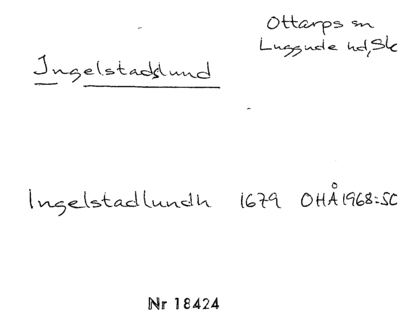 Ottarps sn
Luggude hd, Sk
Ingelstadslund
Ingelstadlundh 1679 OHÅ 1968:50
Nr 18424